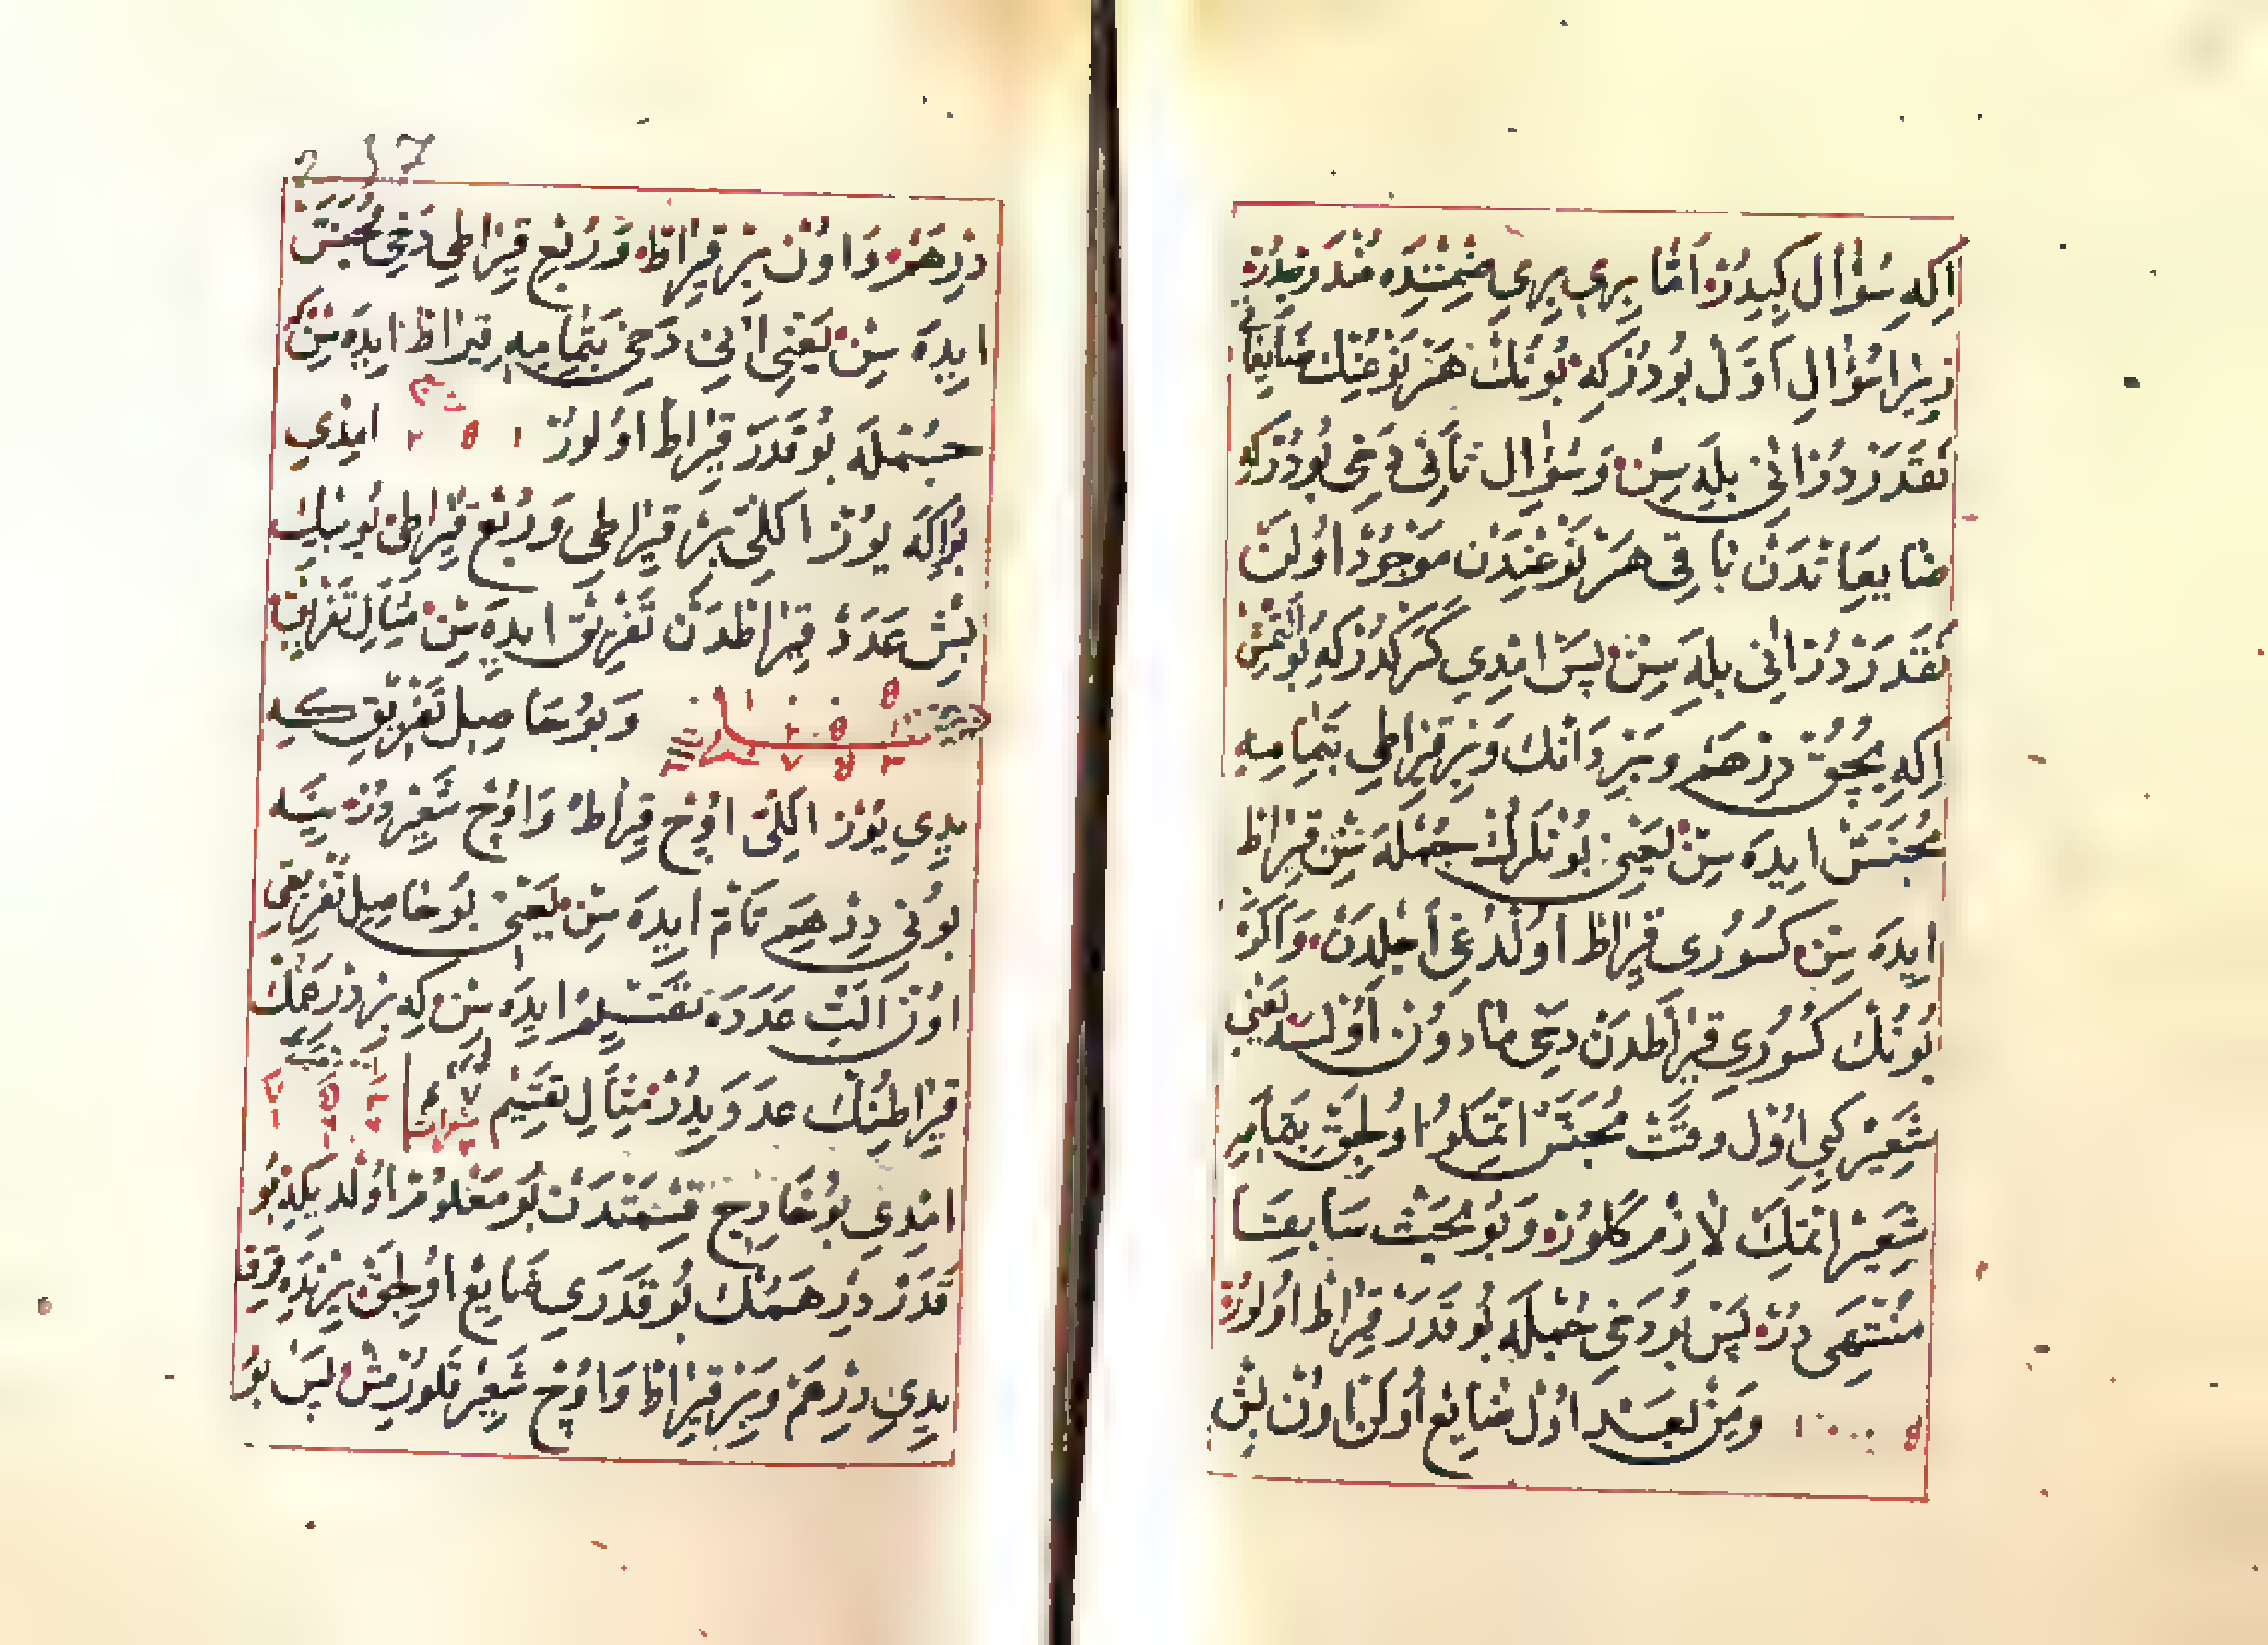 اِكِه سُؤَال كِبِيدُرْ اَمَّا بِرِي بِرِي ضِمْنِنْدَه مُنْدَرِجْدُرْ
زِيرَا سُؤَالِ اَوَّلْ بُودُرْ كِه بُونُكْ هَرْ نَوْعِنِكْ ضَايِعَاتِي
نَقَدَرْ دُرْ اَنِي بِلَه سِنْ وَسُؤَال ثَانِي دَخِي بُودُرْ كِه
ضَايِعَاتْدَنْ بَاقِي هَرْ نَوْعِنْدَنْ مَوْجُودْ اُولَنْ
نَقَدَرْ دُرْ اَنِي بِلَه سِنْ پَسْ اِمْدِي كَرَكْدُرْ كِه بُو اَلْتْمِشْ
اِكِه بُچُقْ دِرْهَمْ وَبِرْ دَانْكْ وَبِرْ قِيرَاطِي بِتَمَامِه
مُجَنَّسْ اِيدَه سِنْ يَعْنِي بُونْلَرُكْ جُمْلَه سِنْ قِيرَاطْ
اِيدَه سِنْ كُسُورِي قِيرَاطْ اُولْدُغِي اَجِلْدَنْ وَاَكَرْ
بُونُكْ كُسُورِي قِيرَاطْدَنْ دَخِي مَادُونْ اُولْسَه يَعْنِي
شَعِيرْ كِبِي اُولْ وَقْتْ مُجَنَّسْ اِتْمَكْلُو اُولِجَقْ بِتَمَامِه
شَعِيرْ اِتْمَكْ لَازِمْ كَلُورْ وَبُو بَحْثْ سَابِقًا
مُنْتَهَى دُرْ پَسْ بُو دَخِي جُمْلَه بُو قَدَرْ قِيرَاطْ اُولُورْ
١٠٠٥ وَمِنْ بَعْد اُولْ ضَايِعْ اُولَنْ اُونْ بِشْ
دِرْهَمْ وَاُونْ بِرْ قِيرَاطْ وَرُبْعِ قِيرَاطِي دَخِي مُجَنَّسْ
اِيدَه سِنْ يَعْنِي اَنِي دَخِي بِتَمَامِه قِيرَاطْ اِيدَه سِنْ كِه
جُمْلَه بُو قَدَرْ قِيرَاطْ اُولُورْ ٢٥١ اِمْدِي
بُو اِكِه يُوزْ اَللِّي بِرْ قِيرَاطِي وَرُبْعِ قِيرَاطِي بُو بِيكْ
بِشْ عَدَدْ قِيرَاطْدَنْ تَفْرِيقْ اِيدَه سِنْ مِثَالِ تَفْرِيقْ
وَبُو حَاصِل تَفْرِيقْ كِه
يِدِي يُوزْ اَللِّي اُوچْ قِيرَاطْ وَاُوچْ شَعِيرْ دُرْ يِنَه
بُونِي دِرْهَمْ تَامّ اِيدَه سِنْ يَعْنِي بُو حَاصِل تَفْرِيقِي
اُونْ اَلْتِي عَدَدَه تَقْسِيمْ اِيدَه سِنْ كِه بِرْ دِرْهَمُكْ
قِيرَاطِنُكْ عَدَدِيدُرْ مِثَالِ تَقْسِيمْ
اِمْدِي بُو خَارِجِ قِسْمَتْدَنْ بُو مَعْلُومْ اُولْدِيكِه بُو
قَدَرْ دِرْهَمُكْ بُو قَدَرِي ضَايِعْ اُولِجَقْ يِرِنْدَه قِرْقْ
يِدِي دِرْهَمْ وَبِرْ قِيرَاطْ وَاُوچْ شَعِيرْ قَلُورْمِشْ پَسْ بُو